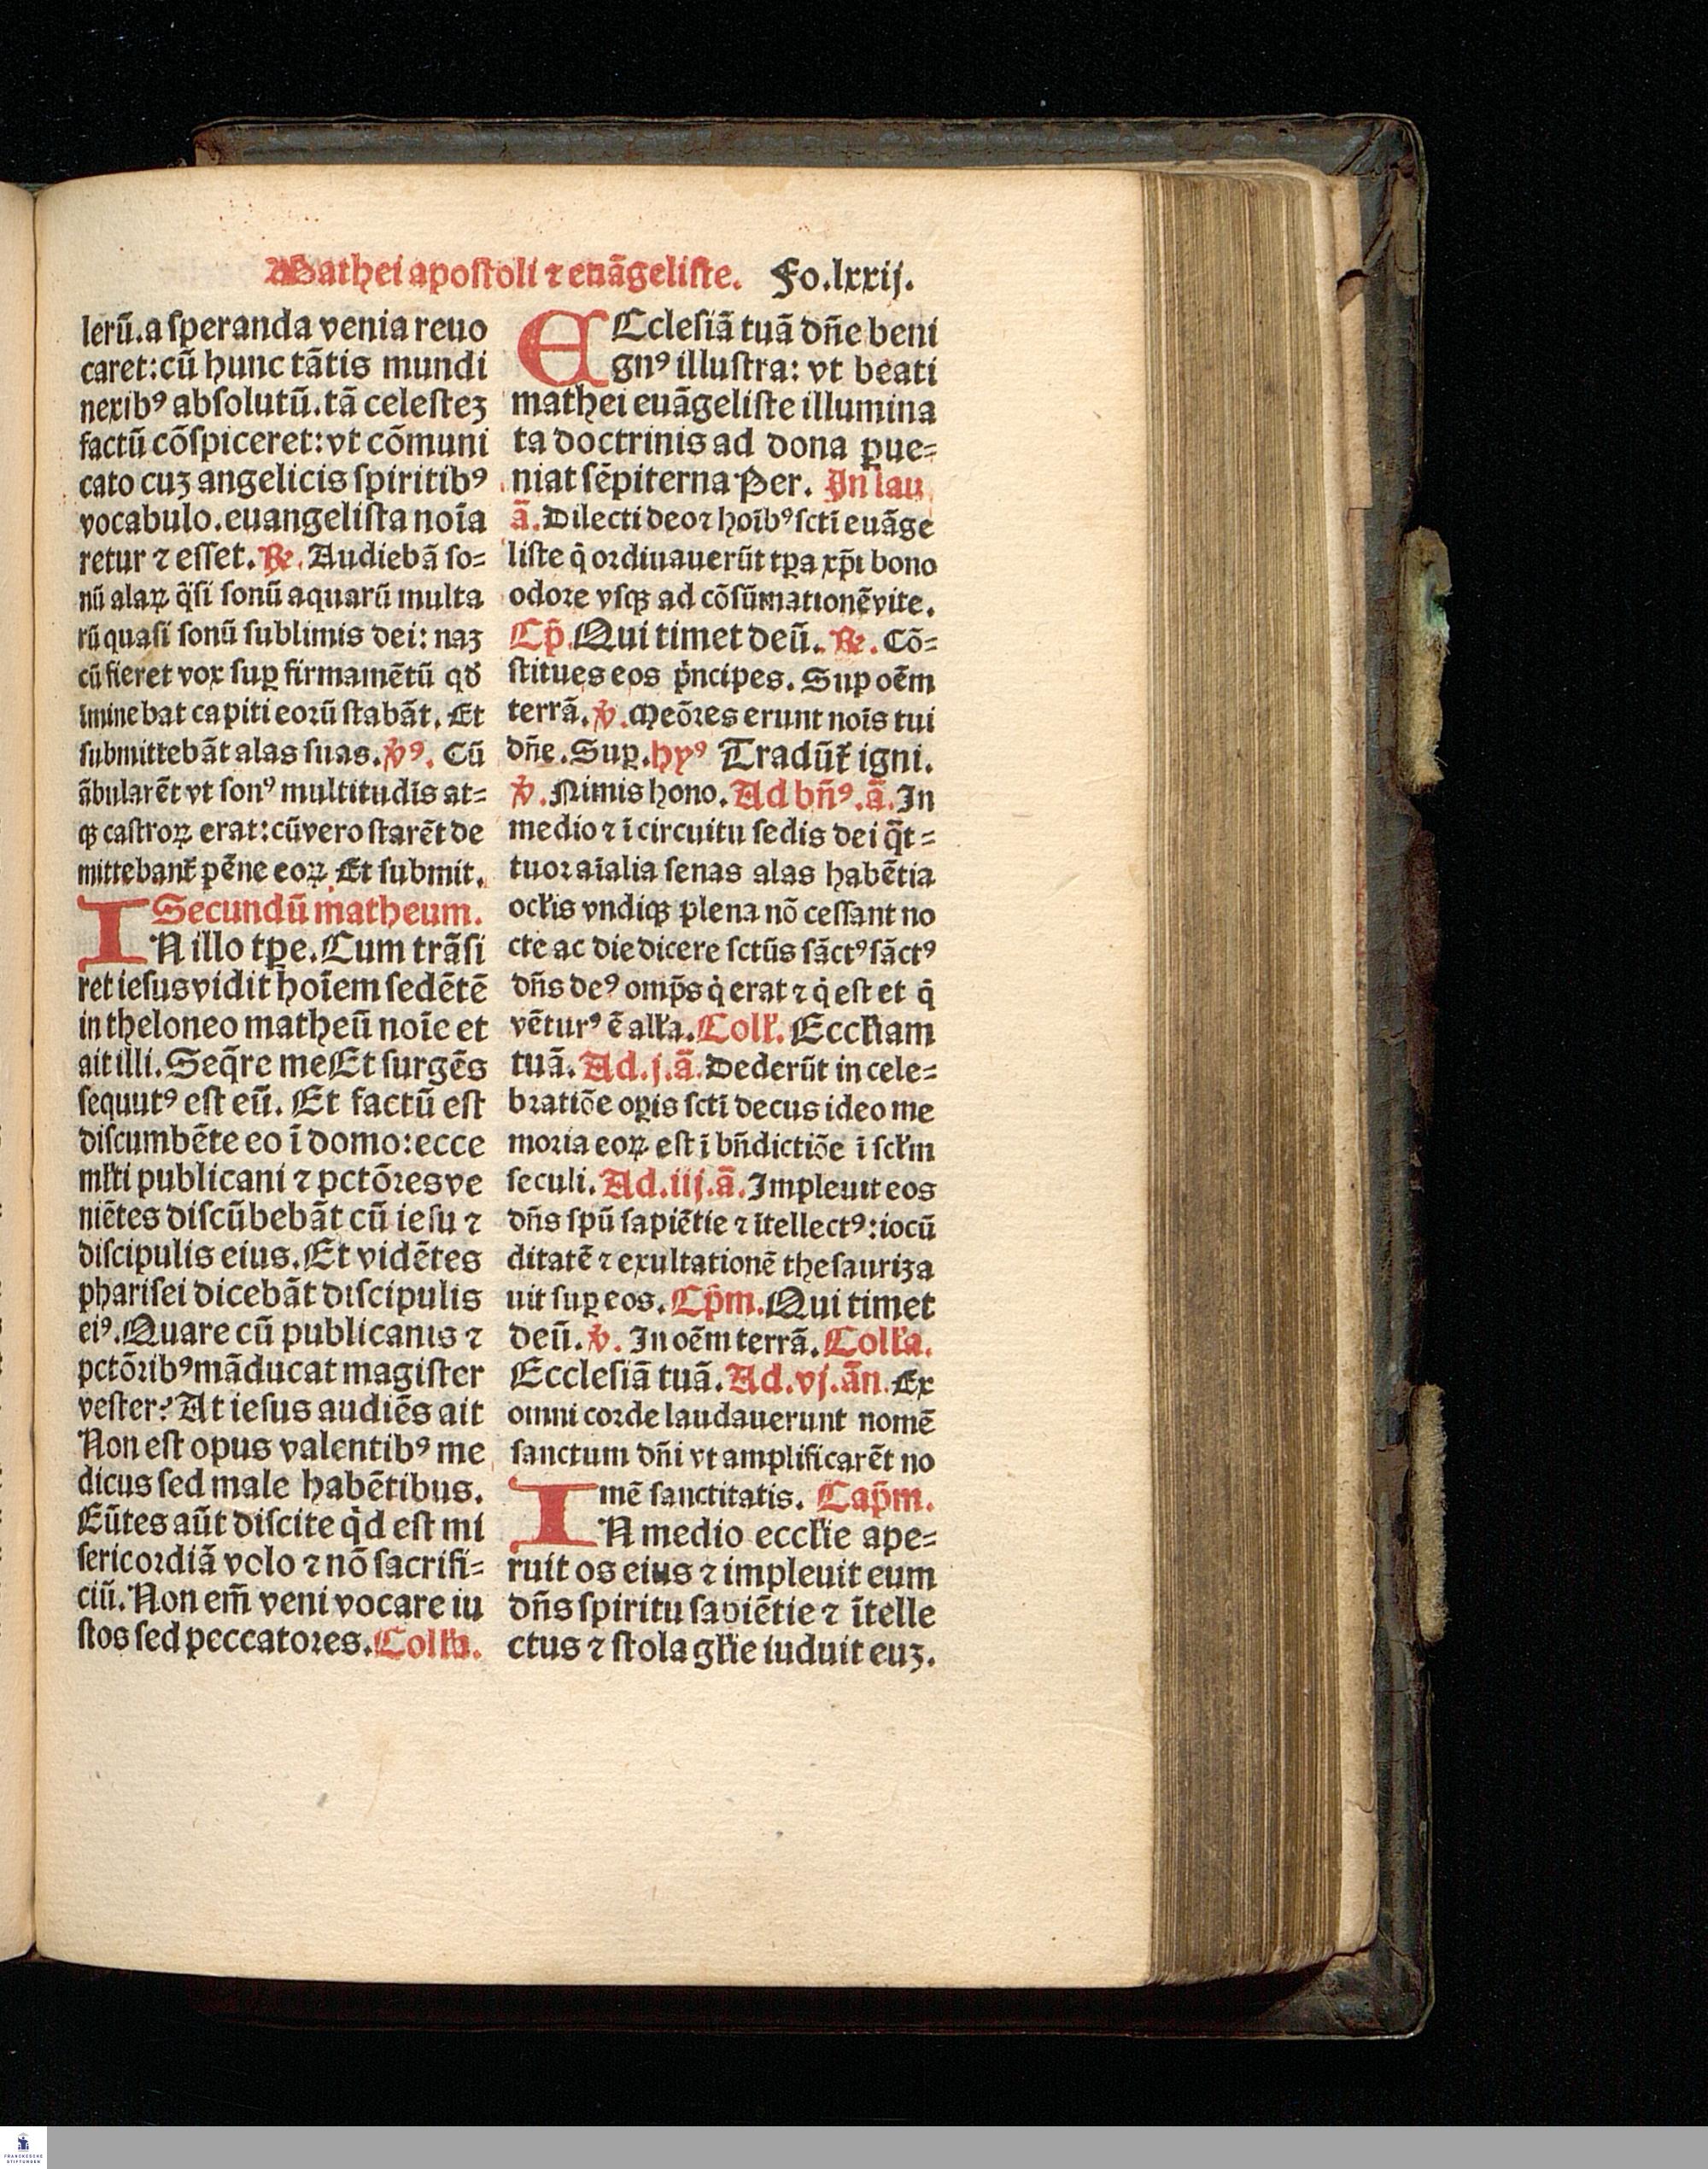 Mathei apostoli ⁊ euãgeliste. Fo.lxxij.
lerũ.a speranda venia reuo
caret:cũ hunc tãtis mundi
nexibꝰ absolutũ.tã celestez
factũ cõspiceret:vt cõmuni
cato cuz angelicis spiritibꝰ
vocabulo.euangelista noĩa
retur ⁊ esset. ℟. Audiebã so-
nũ alaꝝ q̃si sonũ aquarũ multa
rũ quasi sonũ sublimis dei: naz
cũ fieret vox suꝑ firmamẽtũ qđ
ĩminebat capiti eorũ stabãt. Et
submittebãt alas suas. ℣ꝰ. Cũ
ãbularẽt vt sonꝰ multitudĩs at-
qꝫ castroꝝ erat:cũ vero starẽt de
mittebant᷑ pẽne eoꝝ Et submit.
Secundũ matheum.
IN illo tꝑe. Cum trãsi
ret iesus vidit hoĩem sedẽtẽ
in theloneo matheũ noĩe et
ait illi. Seq̃re me Et surgẽs
sequutꝰ est eũ. Et factũ est
discumbẽte eo ĩ domo:ecce
ml̃ti publicani ⁊ pctõres ve
niẽtes discũbebãt cũ iesu ⁊
discipulis eius. Et vidẽtes
pharisei dicebãt discipulis
eiꝰ. Quare cũ publicanis ⁊
pctõribꝰ mãducat magister
vester? At iesus audiẽs ait
Non est opus valentibꝰ me
dicus sed male habẽtibus.
Eũtes aũt discite q̇d est mi
sericordiã volo ⁊ nõ sacrifi-
ciũ. Non em̃ veni vocare iu
stos sed peccatores. Coll̃a.
ECclesiã tuã dñe beni
gnꝰ illustra: vt beati
mathei euãgeliste illumina
ta doctrinis ad dona ꝑue-
niat sẽpiterna Per. In lau
ã. Dilecti deo ⁊ hoĩbꝰ scti euãge
liste q̇ ordiuauerũt tꝑa xp̃i bono
odore vsqꝫ ad cõsũmationẽ vite.
Cp̃. Qui timet deũ. ℟. Cõ-
stitues eos pͥncipes. Sup oẽm
terrã. ℣. Meõres erunt noĩs tui
dñe. Suꝑ. hyꝰ Tradũt᷑ igni.
℣. Nimis hono. Ad bñꝰ. ã. In
medio ⁊ ĩ circuitu sedis dei q̃t-
tuor aĩalia senas alas habẽtia
ocl̃is vndiqꝫ plena nõ cessant no
cte ac die dicere sctũs sãctꝰ sãctꝰ
dñs deꝰ omp̃s q̇ erat ⁊ q̇ est et q̇
vẽturꝰ ẽ all̃a. Coll̃. Eccl̃iam
tuã. Ad.j.ã. Dederũt in cele-
bratiõe oꝑis scti decus ideo me
moria eoꝝ est ĩ bñdictiõe ĩ scl̃m
seculi. Ad.iij.ã. Impleuit eos
dñs spũ sapiẽtie ⁊ ĩtellectꝰ:iocũ
ditatẽ ⁊ exultationẽ thesauriza
uit suꝑ eos. Cp̃m. Qui timet
deũ. ℣. In oẽm terrã. Coll̃a.
Ecclesiã tuã. Ad.vj.ãn. Ex
omni corde laudauerunt nomẽ
sanctum dñi vt amplificarẽt no
mẽ sanctitatis. Cap̃m.
IN medio eccl̃ie ape-
ruit os eius ⁊ impleuit eum
dñs spiritu sapiẽtie ⁊ ĩtelle
ctus ⁊ stola gl̃ie iuduit euz.
FRANCKESCHE
STIFTUNGEN